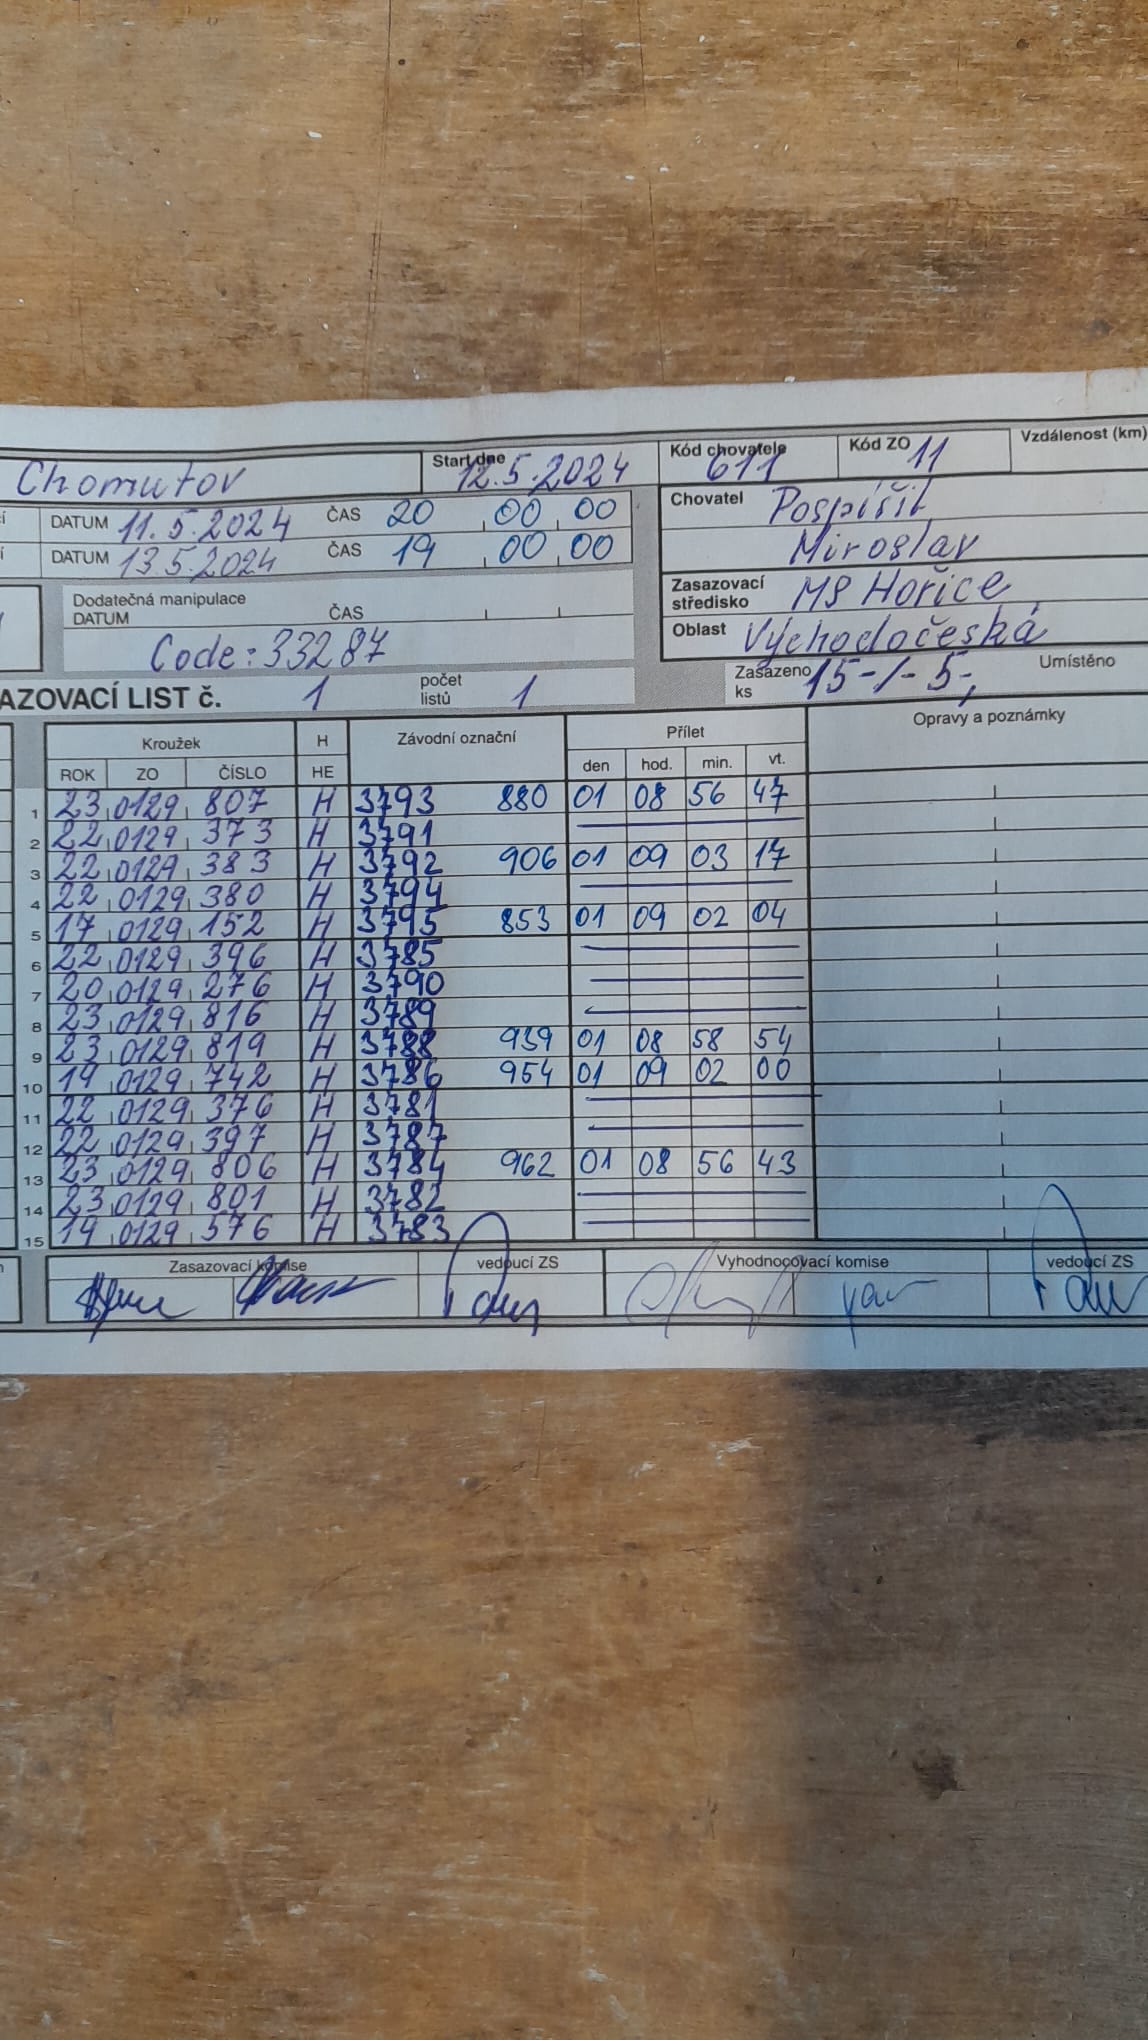 Chomutov Start dne 12.5.2024 Kód chovatele 611 Kód ZO 11 Vzdálenost (km)
DATUM 11.5.2024 ČAS 20 00 00
DATUM 13.5.2024 ČAS 19 00 00
Chovatel Pospíšil
Miroslav
Zasazovací
středisko MS Hořice
Oblast Východočeská
Dodatečná manipulace
DATUM ČAS
Code: 33287
AZOVACÍ LIST č. 1 počet listů 1 Zasazeno ks 15-/-5-, Umístěno
Kroužek H Závodní označní Přílet Opravy a poznámky
ROK ZO ČÍSLO HE den hod. min. vt.
1 23 0129 807 H 3793 880 01 08 56 47
2 22 0129 373 H 3791
3 22 0129 383 H 3792 906 01 09 03 17
4 22 0129 380 H 3794
5 17 0129 152 H 3795 853 01 09 02 04
6 22 0129 396 H 3785
7 20 0129 276 H 3790
8 23 0129 816 H 3789
9 23 0129 819 H 3788 939 01 08 58 54
10 19 0129 742 H 3786 954 01 09 02 00
11 22 0129 376 H 3781
12 22 0129 397 H 3787
13 23 0129 806 H 3784 962 01 08 56 43
14 23 0129 801 H 3782
15 19 0129 576 H 3783
Zasazovací komise vedoucí ZS Vyhodnocovací komise vedoucí ZS